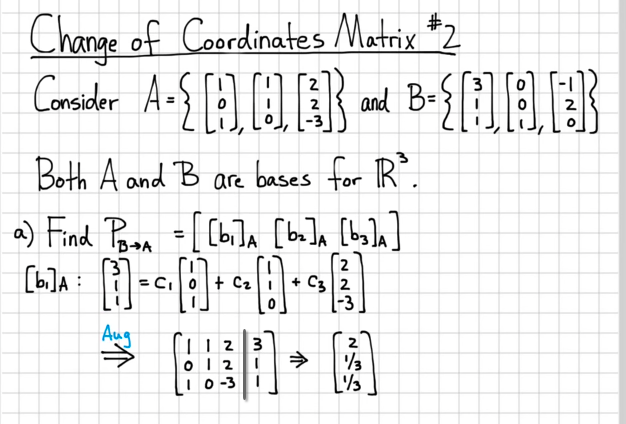 Change of Coordinates Matrix #2
Consider A = { [1 0 1], [1 1 0], [2 2 -3] } and B = { [3 1 1], [0 0 1], [-1 2 0] }
Both A and B are bases for ℝ³.
a) Find P_B→A = [ [b₁]_A [b₂]_A [b₃]_A ]
[b₁]_A : [3 1 1] = c₁ [1 0 1] + c₂ [1 1 0] + c₃ [2 2 -3]
Aug
⇒ [1 1 2 | 3
0 1 2 | 1
1 0 -3 | 1] ⇒ [2 1/3 1/3]